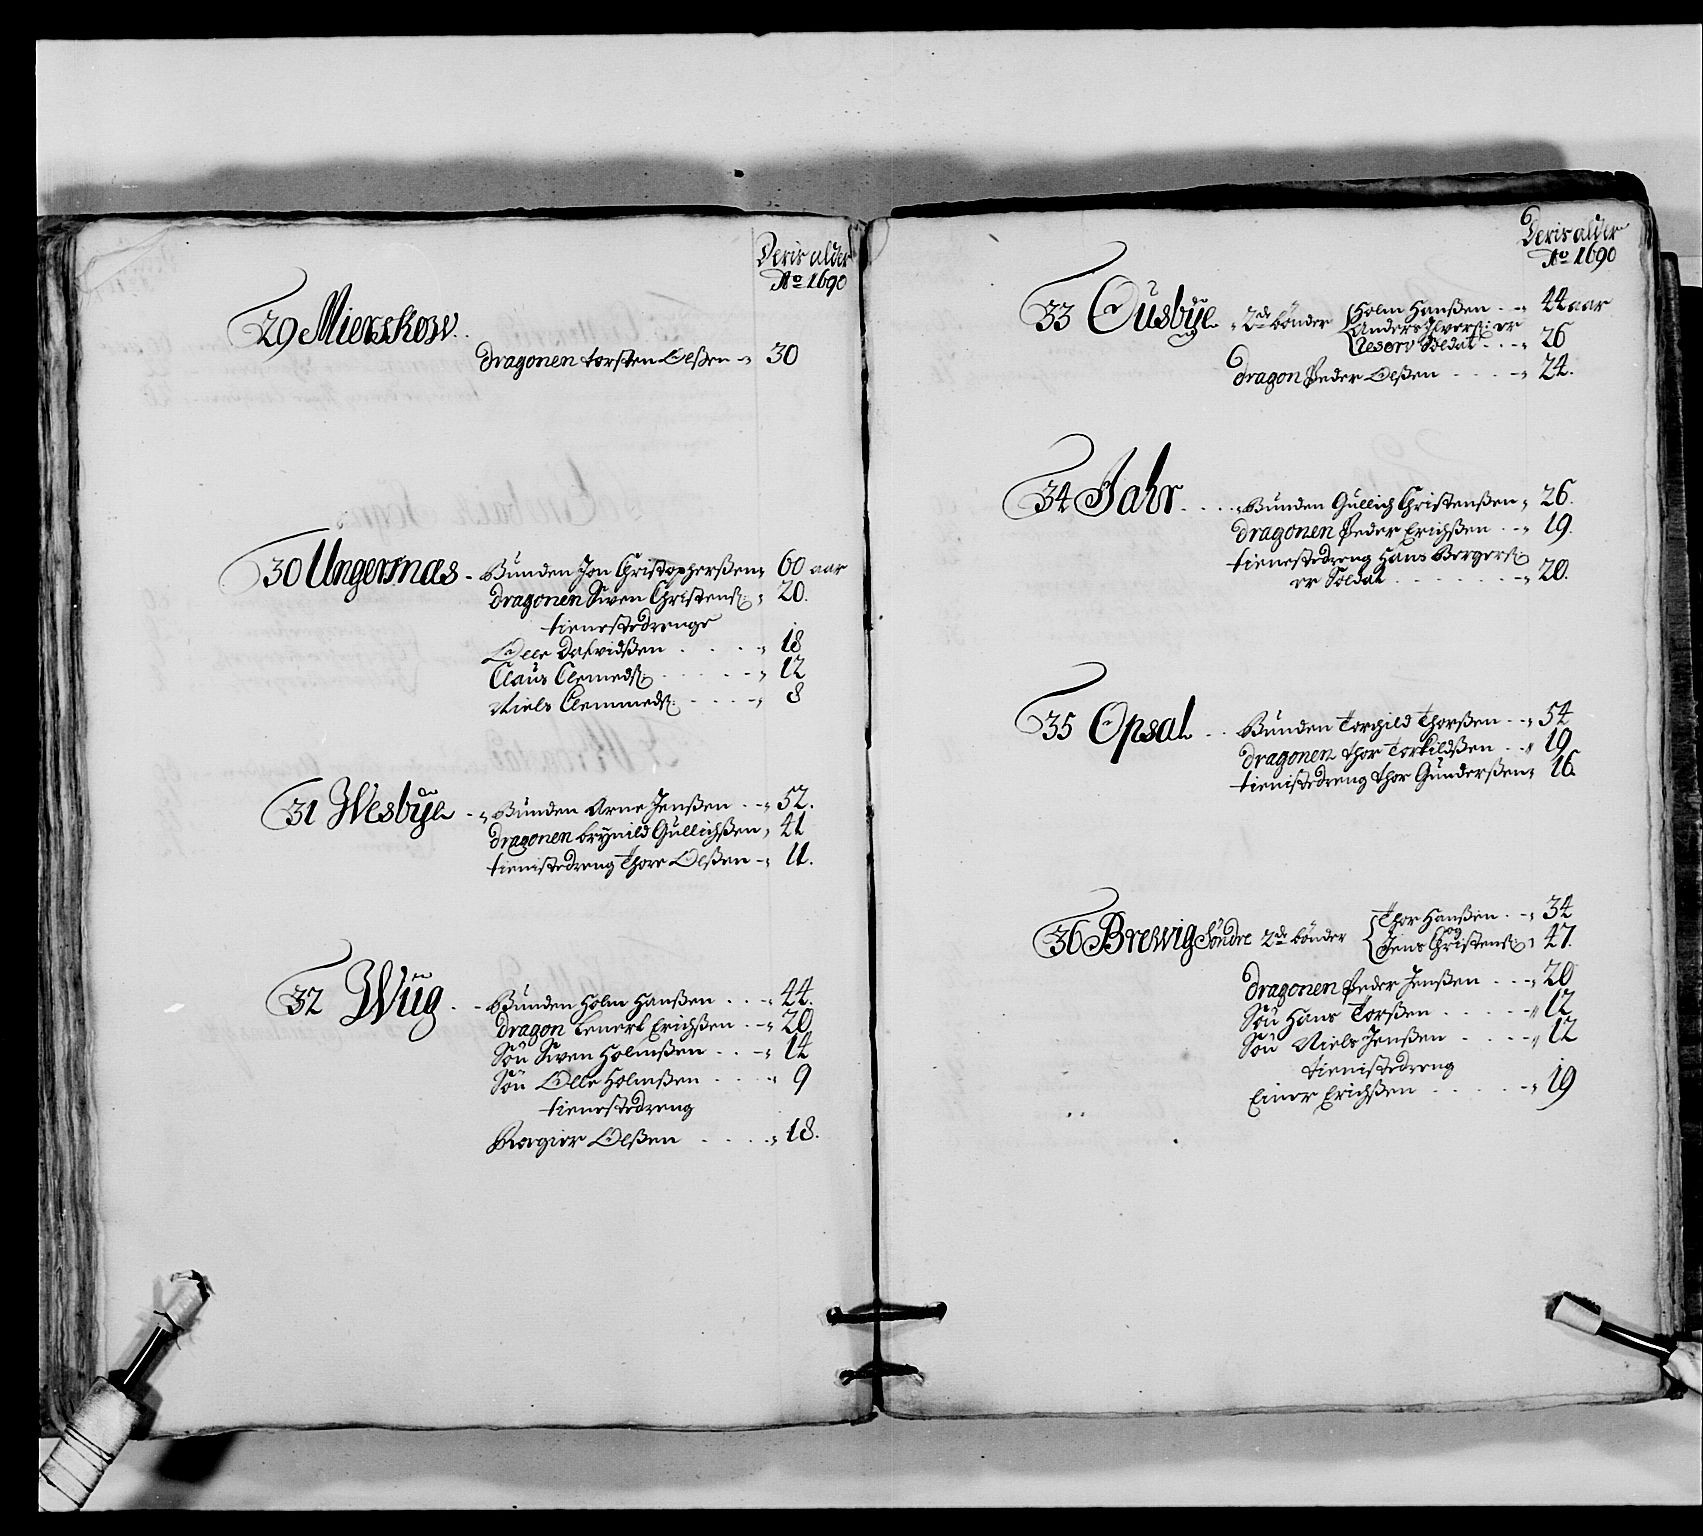 Deris alder
Ao 1690
29 Mierskow.
dragonen torsten Olßen 30
30 Ungersnæs - Bunden Jon Christopherßen 60 aar
dragonen Swen Christens: 20.
tienestedrenge
Olle Dafvidßen . . . . 18
Claus Clemeds: . . . . 12
Niels Clemmeds: . . . . 8
31 Wesbye - Bunden Arne Jenßen . . 52.
dragonen brynild Gullichßen 41
tienistedreng Thore Olßen 11.
32 Wiig . - Bunden Holm Hanßen . . . 44.
dragon Lenert Erichßen . . 20
Søn Swen Holmßen . . . 14
Søn Olle Holmßen . . . . 9
tienestedreng
Olßen . . . . . 18.
Deris alder
Ao 1690
33 Ousbye 2de bønder Holm Hanßen . . 44 aar
og Anders Ilvers: er
Reserv Soldat . . . 26
dragon Peder Olßen . . . . 24.
34 Jahr . . . . Bunden Gullich Christenßen 26.
dragonen Peder Erichßen . . 19.
tienestedreng Hans Bergers:
er Soldat . . . . . . . 20.
35 Opsal . . Bunden Torgild Thorßen . . 54
dragonen Thor Torkildßen . . 19
tienistedreng Thor Gunderßen 16.
36 Brewig Søndre 2de bønder Thor Hanßen . . 34
og
Jens Christens: 47.
dragonen Peder Jenßen . . . 20
Søn Hans Torßen . . . . . 12
Søn Niels Jenßen . . . . 12
tienistedreng
Einer Erichßen . . . . . . 19